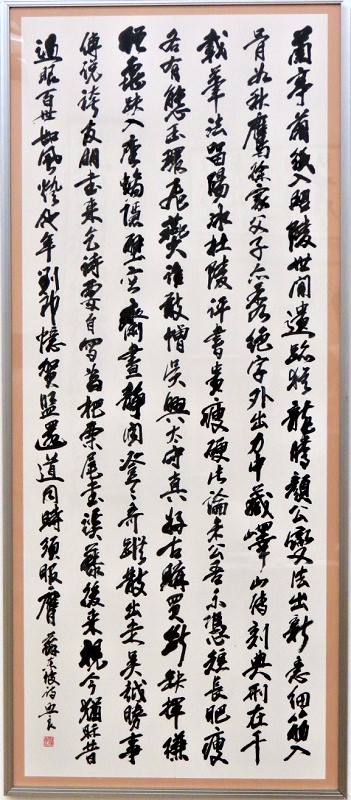 蘭亭繭紙入昭陵世間遺跡猶龍騰顏公變法出新意細筋入
骨如秋鷹徐家父子亦秀絕字外出力中藏嶧山傳刻典刑在千
載筆法留陽冰杜陵評書貴瘦硬此論未公吾不憑短長肥瘦
各有態玉環飛燕誰敢憎吳興太守真好古購買斷缺揮縑
繒龜趺入座螭隱壁空齋晝靜聞登々奇蹤散出走吳越勝事
傳說誇友朋書來乞詩要自寫為把栗尾書溪藤後來視今猶眎昔
過眼百世如風燈他年劉郎憶賀監還道同時須服膺 蘇東坡詩